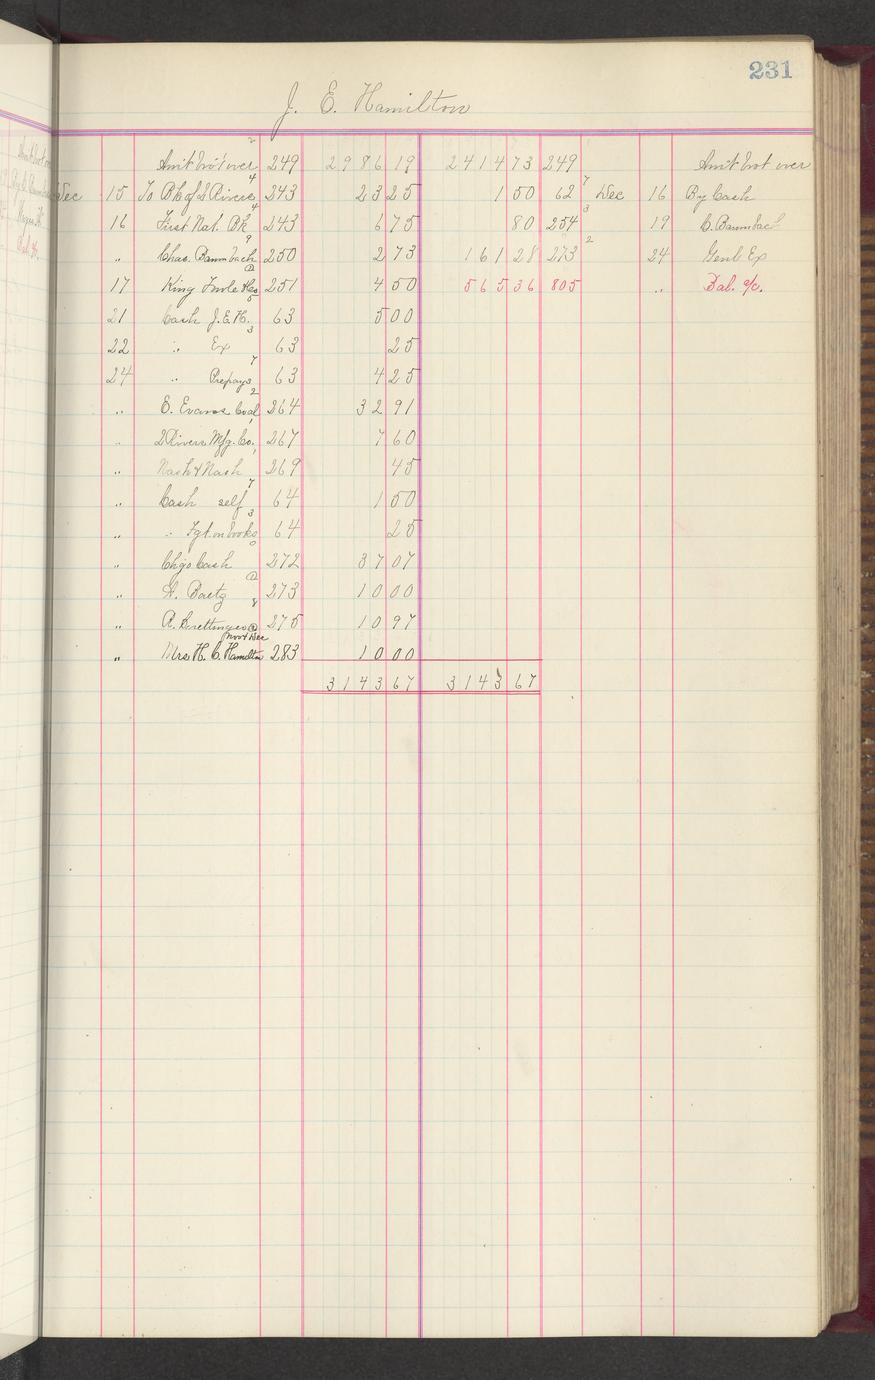 231
J. E. Hamilton
Am't bro't over 2 249 2986 19 2414 73 249 Am't bro't over
Dec 15 To Bk of 2 Rivers 4 243 23 25 1 50 62 7 Dec 16 By Cash
16 First Nat. Bk 4 243 6 75 80 254 3 19 C. Baumbach
" Chas. Baumbach 9 250 2 73 161 28 273 2 24 Genl Ex
17 King 251 4 50 565 36 805 " Bal. a/c.
21 Cash J.E.H. 5 63 5 00
22 " Ex 3 63 25
24 " Prepays 7 63 4 25
" E. Evans Coal 2 264 32 91
" 2 Rivers Mfg. Co. 1 267 7 60
" Nash & Nash 1 269 45
" Cash self 7 64 1 50
" " Fgt. on books 3 64 25
" Chgo Cash 0 272 37 07
" Baetz 273 10 00
" 8 275 10 97
Nov & Dec
" Mrs H. C. Hamilton 283 10 00
3143 67 3143 67